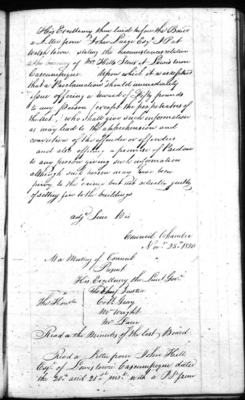 His Excellency then laid before the Board
a Letter from John Large Esqr J. P. at
stating the circumstances relative
to the burning of Mr. Hills Store at Lewis town
Cascumpeque upon which it was ordered
that a Proclamation should immediately
issue offering a reward of Fifty pounds
to any Person (except the perpetrators of
the Act) who shall give such information
as may lead to the apprehension and
conviction of the offender or offenders
and also offering a promise of Pardon
to any person giving such information
although such person may have been
privy to the crime but not actually guilty
of setting fire to the buildings
adjd Sine Die
Council Chamber
Novr 25th 1830
At a Meeting of Council
Present
His Excellency the Lieut Govr
The Honble
Coll Gray
Mr Wright
Mr Lane
Read the Minutes of the last Board
Read a Letter from John Hill
Esqr of Lewis town Cascumpeque dated
the 20th and 21st inst. with a P.S. from